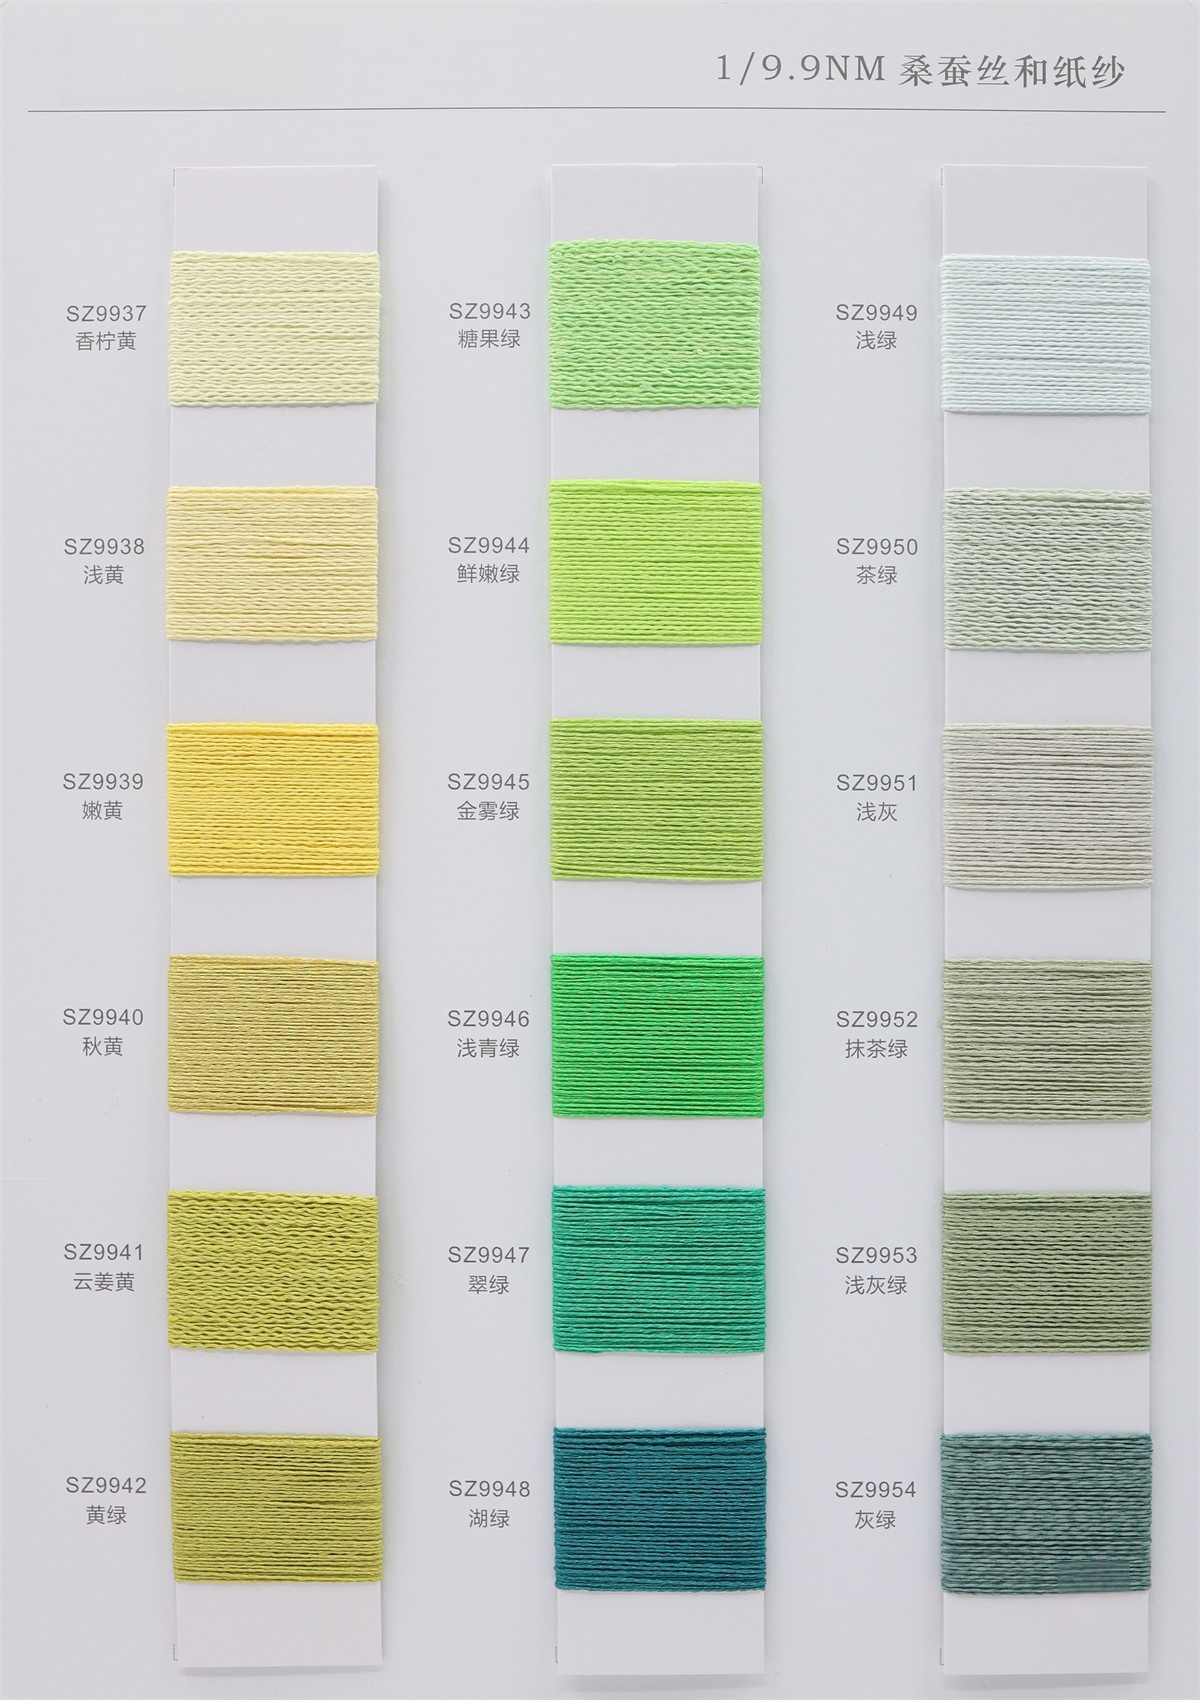 1/9.9NM 桑蚕丝和纸纱
SZ9937
香柠黄
SZ9938
浅黄
SZ9939
嫩黄
SZ9940
秋黄
SZ9941
云姜黄
SZ9942
黄绿
SZ9943
糖果绿
SZ9944
鲜嫩绿
SZ9945
金雾绿
SZ9946
浅青绿
SZ9947
翠绿
SZ9948
湖绿
SZ9949
浅绿
SZ9950
茶绿
SZ9951
浅灰
SZ9952
抹茶绿
SZ9953
浅灰绿
SZ9954
灰绿